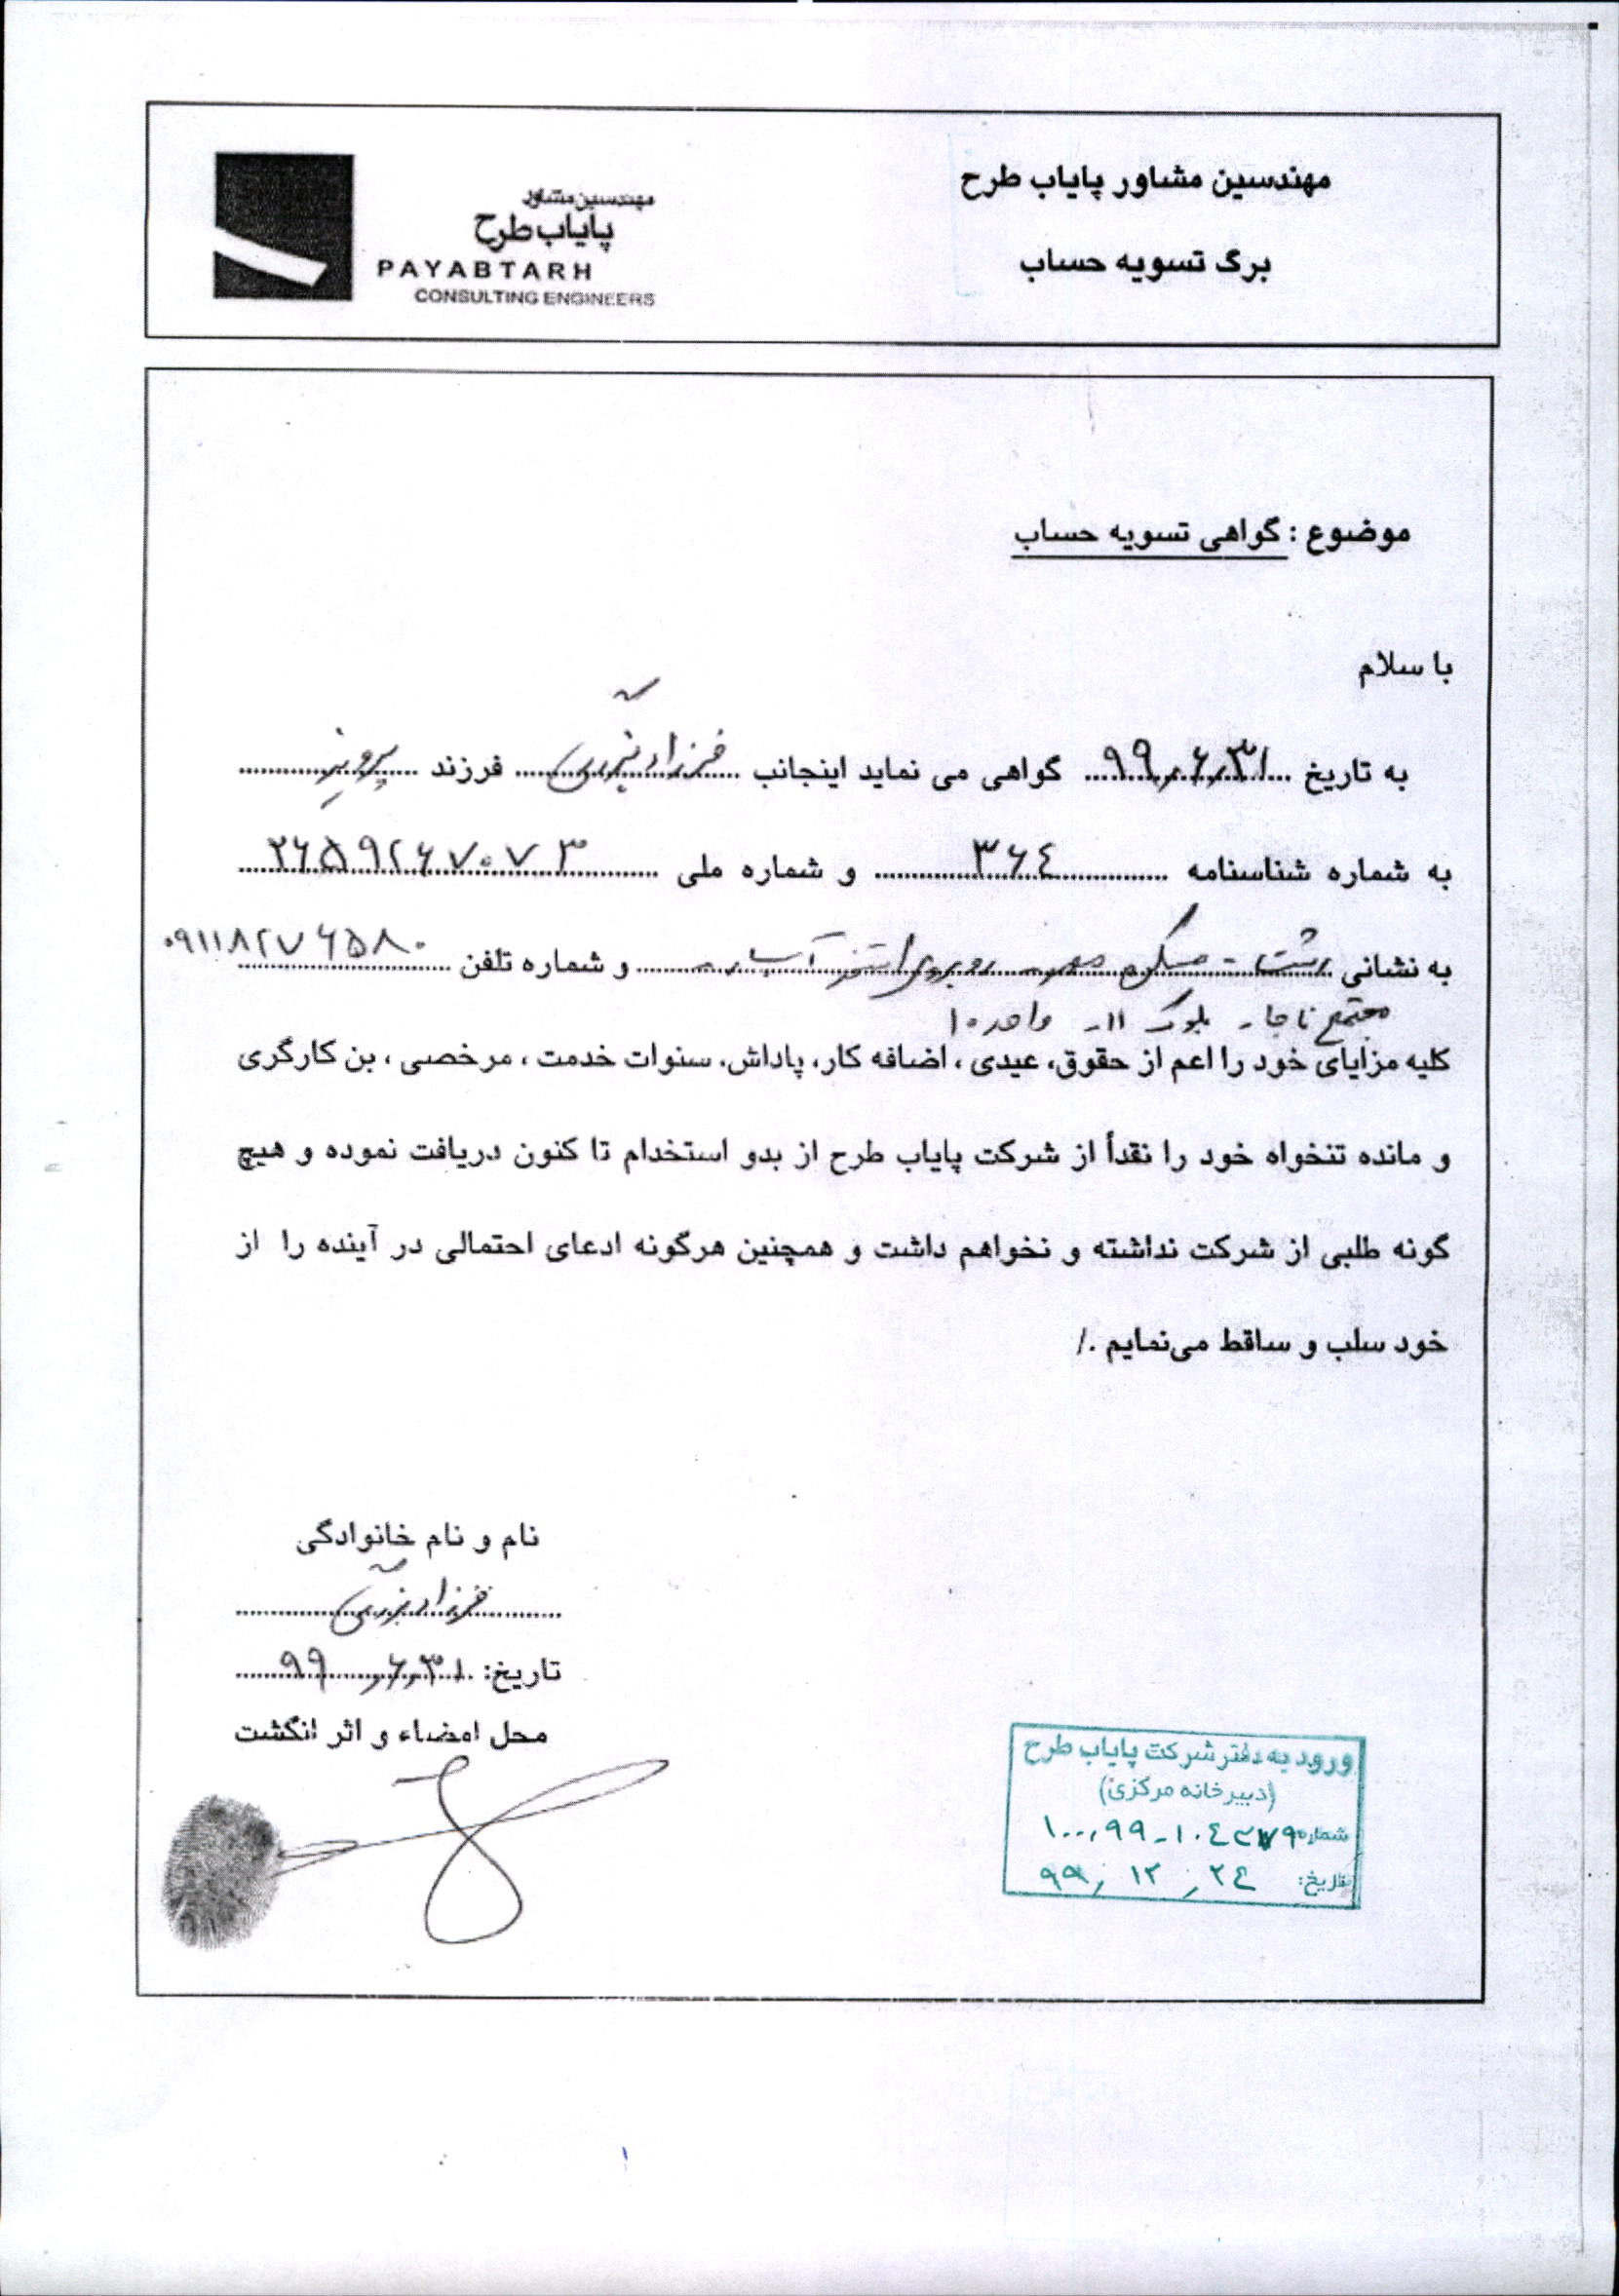 مهندسین مشاور پایاب طرح
برگ تسویه حساب
مهندسین مشاور
پایاب طرح
PAYABTARH
CONSULTING ENGINEERS
موضوع : گواهی تسویه حساب
با سلام
به تاریخ ۹۹٫۶٫۳۱ گواهی می نماید اینجانب فرزاد فرزند پرویز
به شماره شناسنامه ۳۶۴ و شماره ملی ۲۶۵۹۲۶۷۰۷۳
به نشانی رشت - مسکن مهر - روبروی استخر و شماره تلفن ۰۹۱۱۸۲۷۶۵۸۰
مجتمع ناجا - بلوک ۱۱ - واحد ۱۰
کلیه مزایای خود را اعم از حقوق، عیدی ، اضافه کار، پاداش، سنوات خدمت ، مرخصی ، بن کارگری
و مانده تنخواه خود را نقدأ از شرکت پایاب طرح از بدو استخدام تا کنون دریافت نموده و هیچ
گونه طلبی از شرکت نداشته و نخواهم داشت و همچنین هرگونه ادعای احتمالی در آینده را از
خود سلب و ساقط می‌نمایم ./
نام و نام خانوادگی
فرزاد
تاریخ: ۹۹٫۶٫۳۱
محل امضاء و اثر انگشت
ورود به دفتر شرکت پایاب طرح
(دبیرخانه مرکزی)
شماره
تاریخ: ۹۹٫۱۲٫۲۴